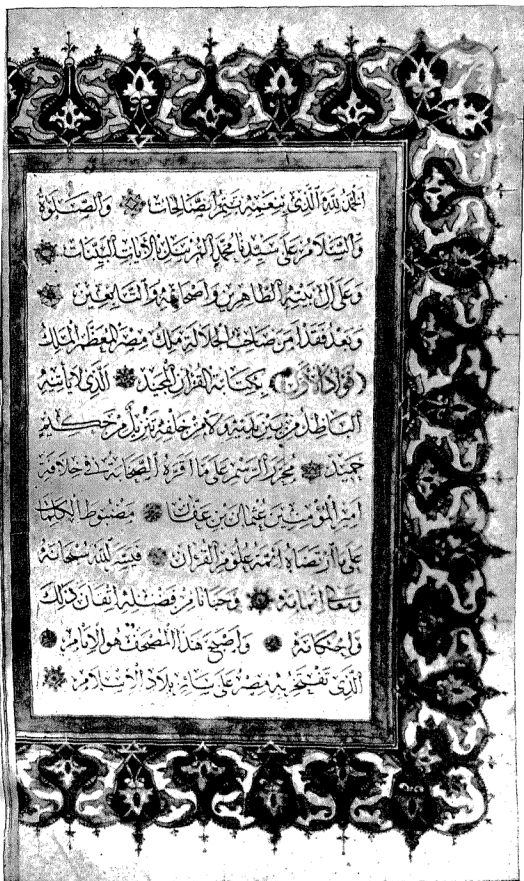 الحمد لله الذي بنعمته تتم الصالحات والصلوة
والسلام على سيدنا محمد المرسل بالآيات البينات
وعلى آل بيته الطاهرين وأصحابه والتابعين
وبعد فقد أمر صاحب الجلالة ملك مصر المعظم الملك
(فؤاد الأول) بكتابة القرآن المجيد الذي لا يأتيه
الباطل من بين يديه ولا من خلفه تنزيل من حكيم
حميد محرر الرسم على ما أقره الصحابة في خلافة
أمير المؤمنين عثمان بن عفان مضبوط الكلمات
على ما ارتضاه أئمة علوم القرآن فيسر الله سبحانه
وتعالى إتمامه وحبانا من فضله إتقان ذلك
وإحكامه وأصبح هذا المصحف هو الإمام
الذي تفتخر به مصر على سائر بلاد الإسلام